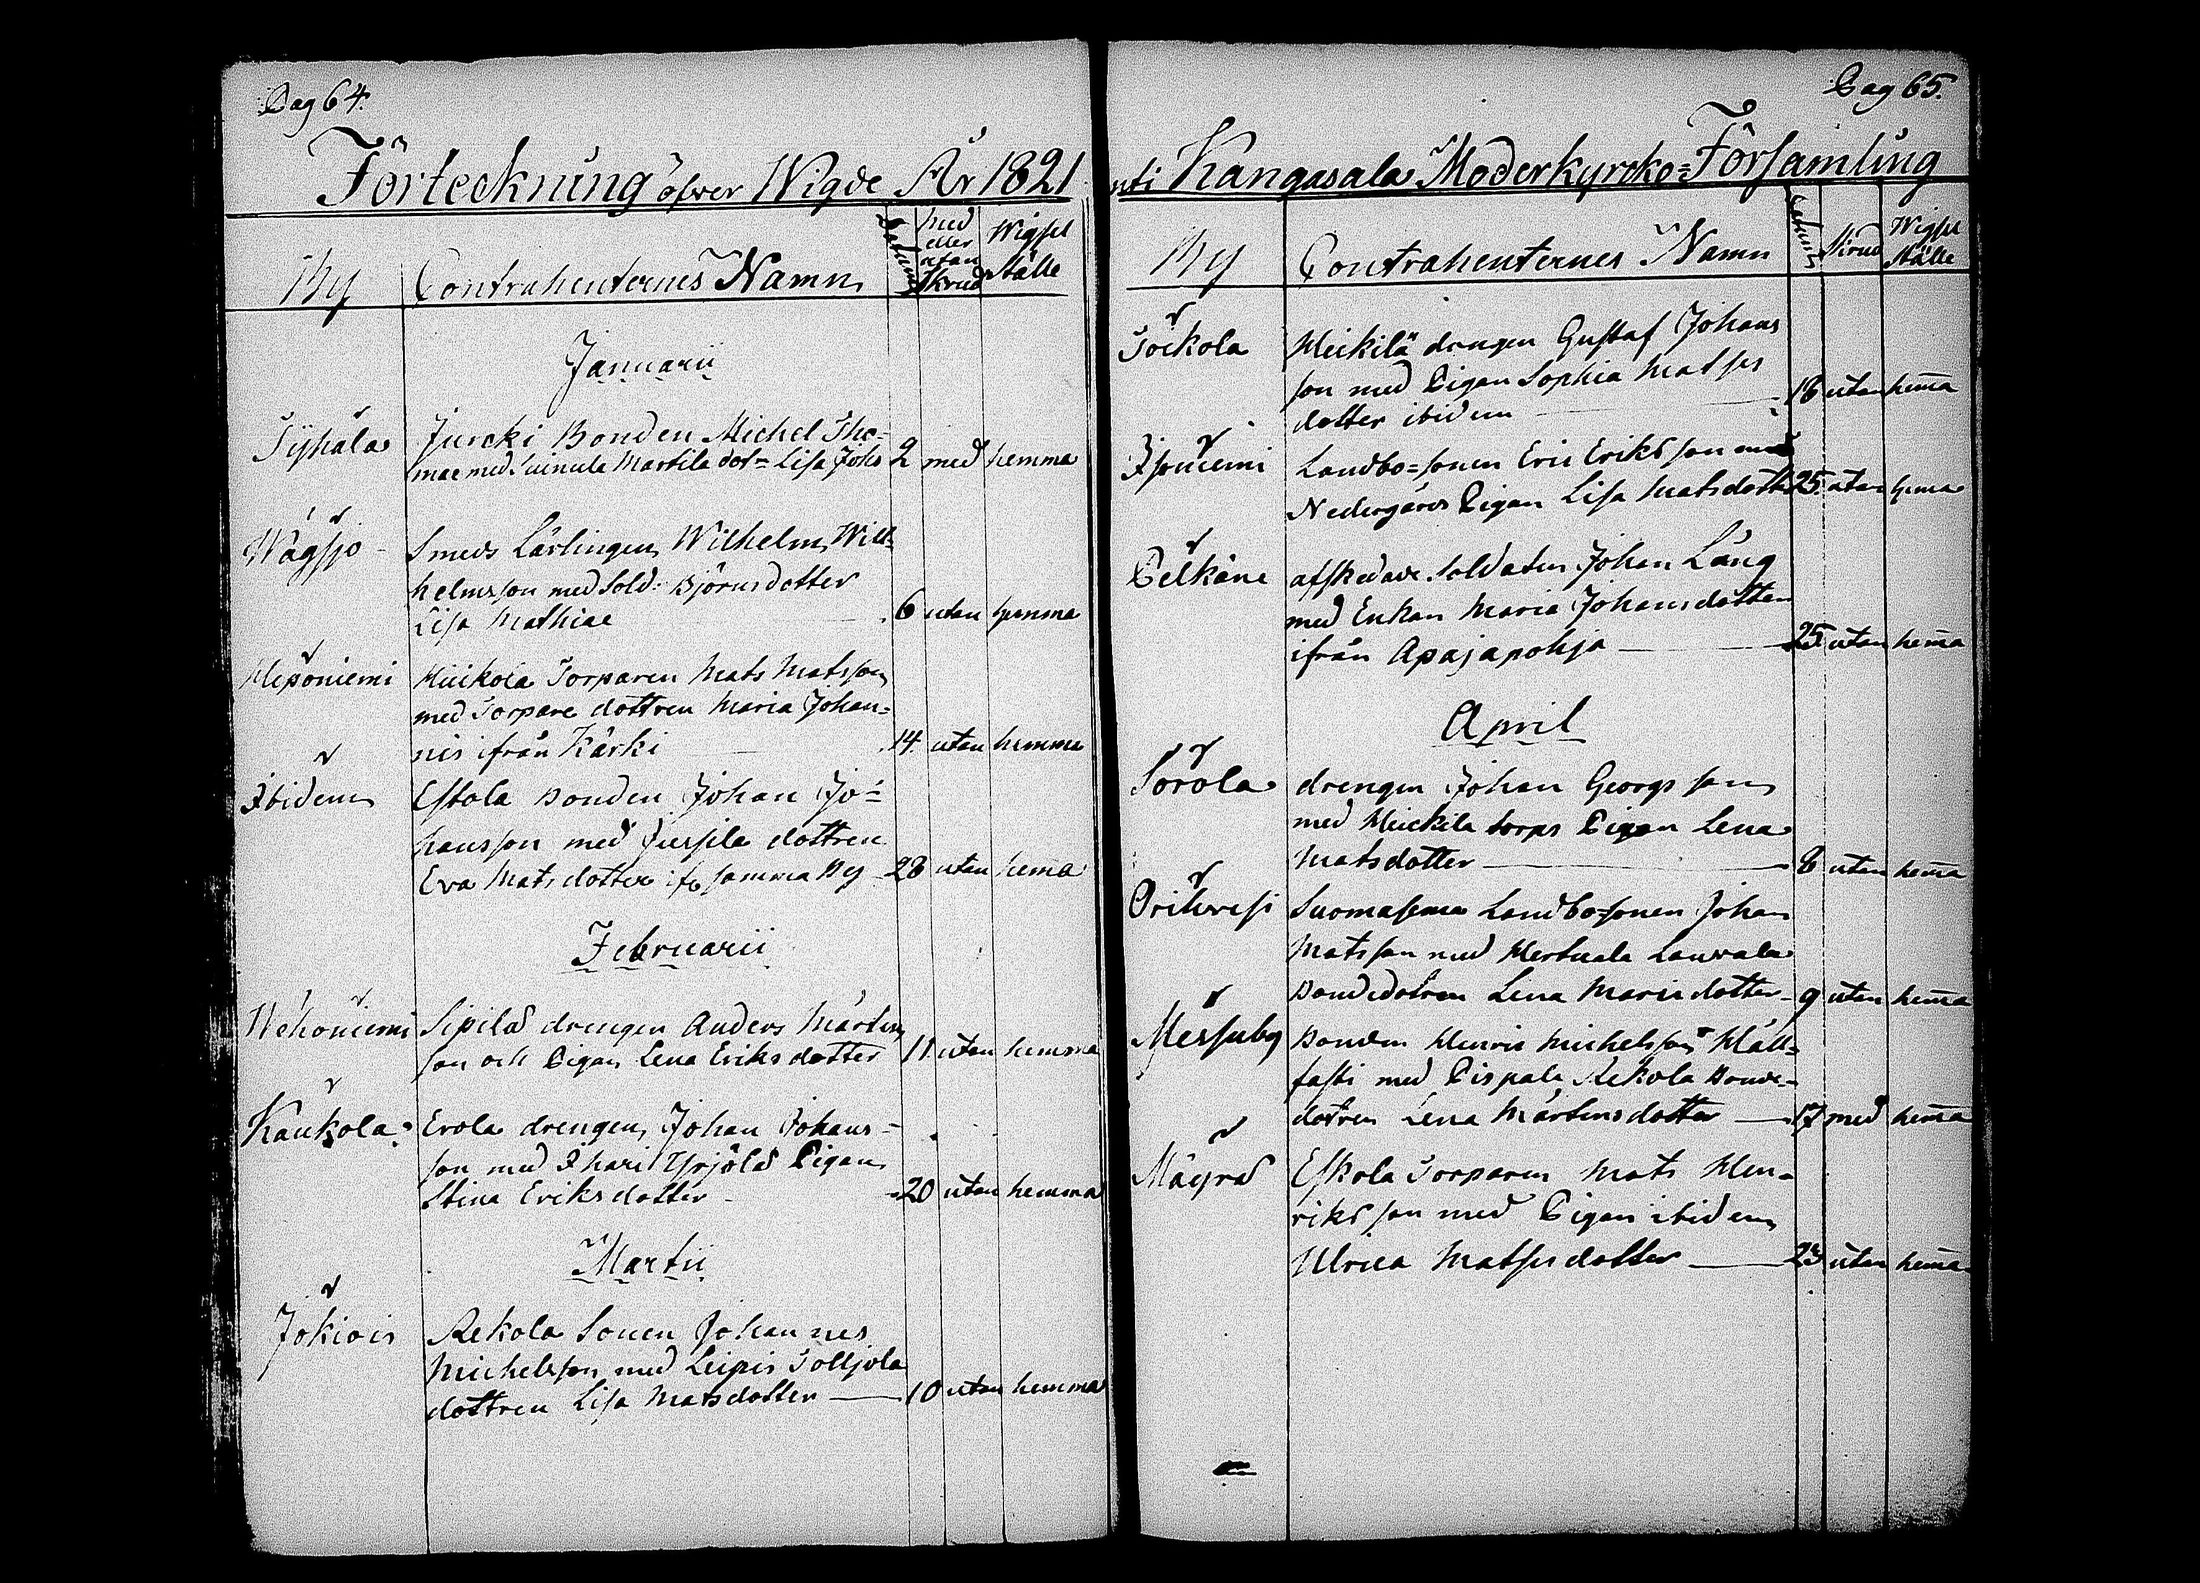 Pag 64.
Förteckning öfver Wigde År 1821
By Contrahenternes Namn Datum med eller utan Skrud Wigsel ställe
Januarii
Tyhala Jurcki Bonden Michel Tho=
mae med Suinula Martila dot= Lisa Johs 2 med hemma
Wägsjo Smeds Lärlingen Wilhelm Will=
helmsson med Sold: Björnsdotter
Lisa Mathiae 6 utan hemma
Heponiemi Huikola Torparen Mats Matsson
med Torpare dottren Maria Johan=
nis ifrån Kärki 14. utan hemma
Ibidem Eskola Bonden Johan Jo=
hansson med Jussila dottren
Eva Matsdotter ifr samma By 28 utan hema
Februarii
Wehoniemi Sipilä drengen Anders Mårtens
son och Pigan Lena Eriksdotter 11 utan hemma
Kaukola Erola drengen Johan Johans=
son med Ihari Yrjölä Pigan
Stina Eriksdotter 20 utan hemma
Martii
Jokiois Rekola Sonen Johannes
Michelsson med Leipis Tolljola
dottren Lisa Matsdotter 10 utan hemma
Pag 65.
uti Kangasala Moderkyrcko=Församling
By Contrahenternes Namn Datum Skrud Wigsel ställe
Toikola Heikilä drengen Gustaf Johans
son med Pigan Sophia Matses
dotter ibidem 18 utan hema
Isoniemi Landbo=sonen Eric Eriksson med
Nedergårds Pigan Lisa Matsdotter 25. utan hema
Pelkäne afskedade Soldaten Johan Lång
med Enkan Maria Johansdotter
ifrån Apajapohja 25 utan hema
April
Sorola drengen Johan Georgsson
med Heickila torps Pigan Lena
Matsdotter 8 utan hema
Orihvesi Suomasema Landbo=sonen Johan
Matsson med Hertuala Laurala
Bondedotren Lena Mariedotter 9 utan hema
Messuby Bonden Henric Michelsson Häll=
fasti med Pispala Rekola Bonde=
dotren Lena Mårtensdotter 17 med hema
Mäyrä Eskola Torparen Mats Hen=
riksson med Pigan ibidem
Ulrica Matsesdotter 23 utan hema